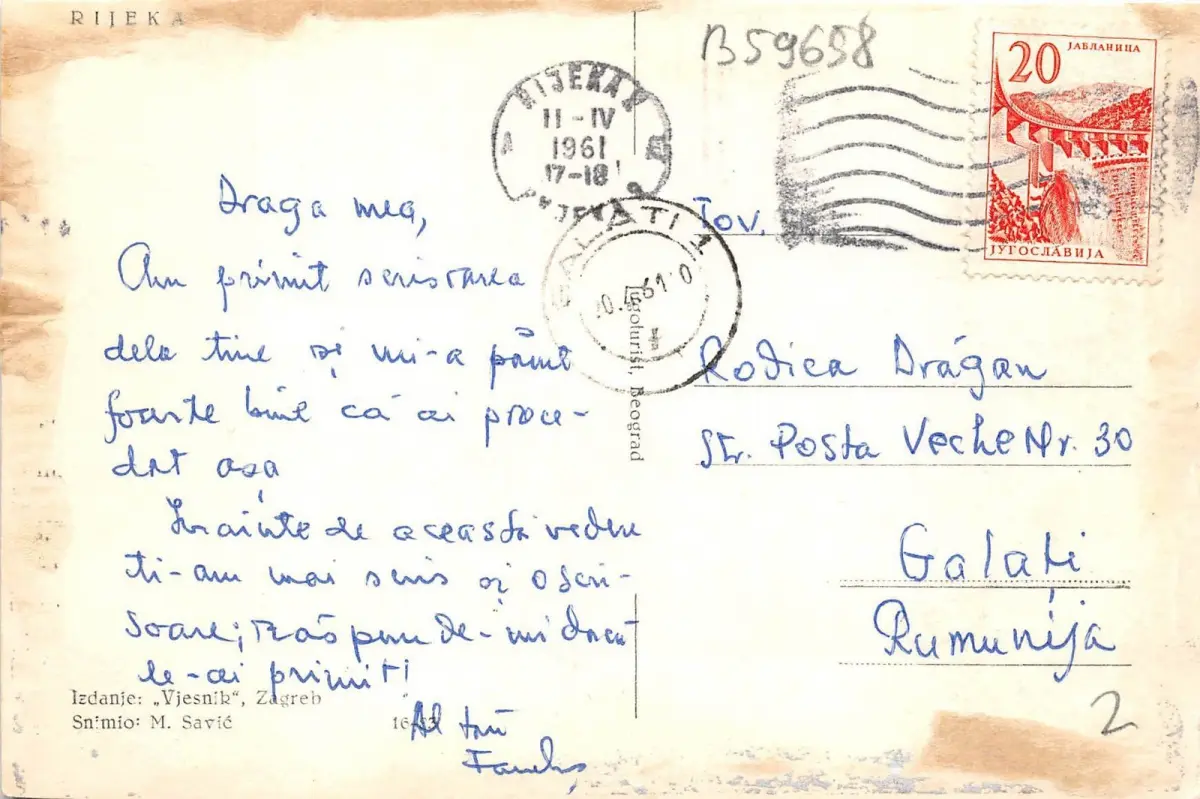 RIJEKA
B59658
20
ЈАБЛАНИЦА
JУГОСЛАВИЈА
RIJEKA
11-IV
1961
17-18
GALATI 1
Draga mea,
Am primit scrisoarea
dela tine și mi-a părut
foarte bine că ai proce-
dat așa
Înainte de această vedere
ti-am mai scris și o scri-
soare; răspunde-mi dacă
le-ai primit!
Al tău
Izdanje: „Vjesnik“, Zagreb
Snimio: M. Savić
Jugoturist, Beograd
Tov.
Rodica Drăgan
Str. Posta Veche Nr. 30
Galați
Rumunija
2